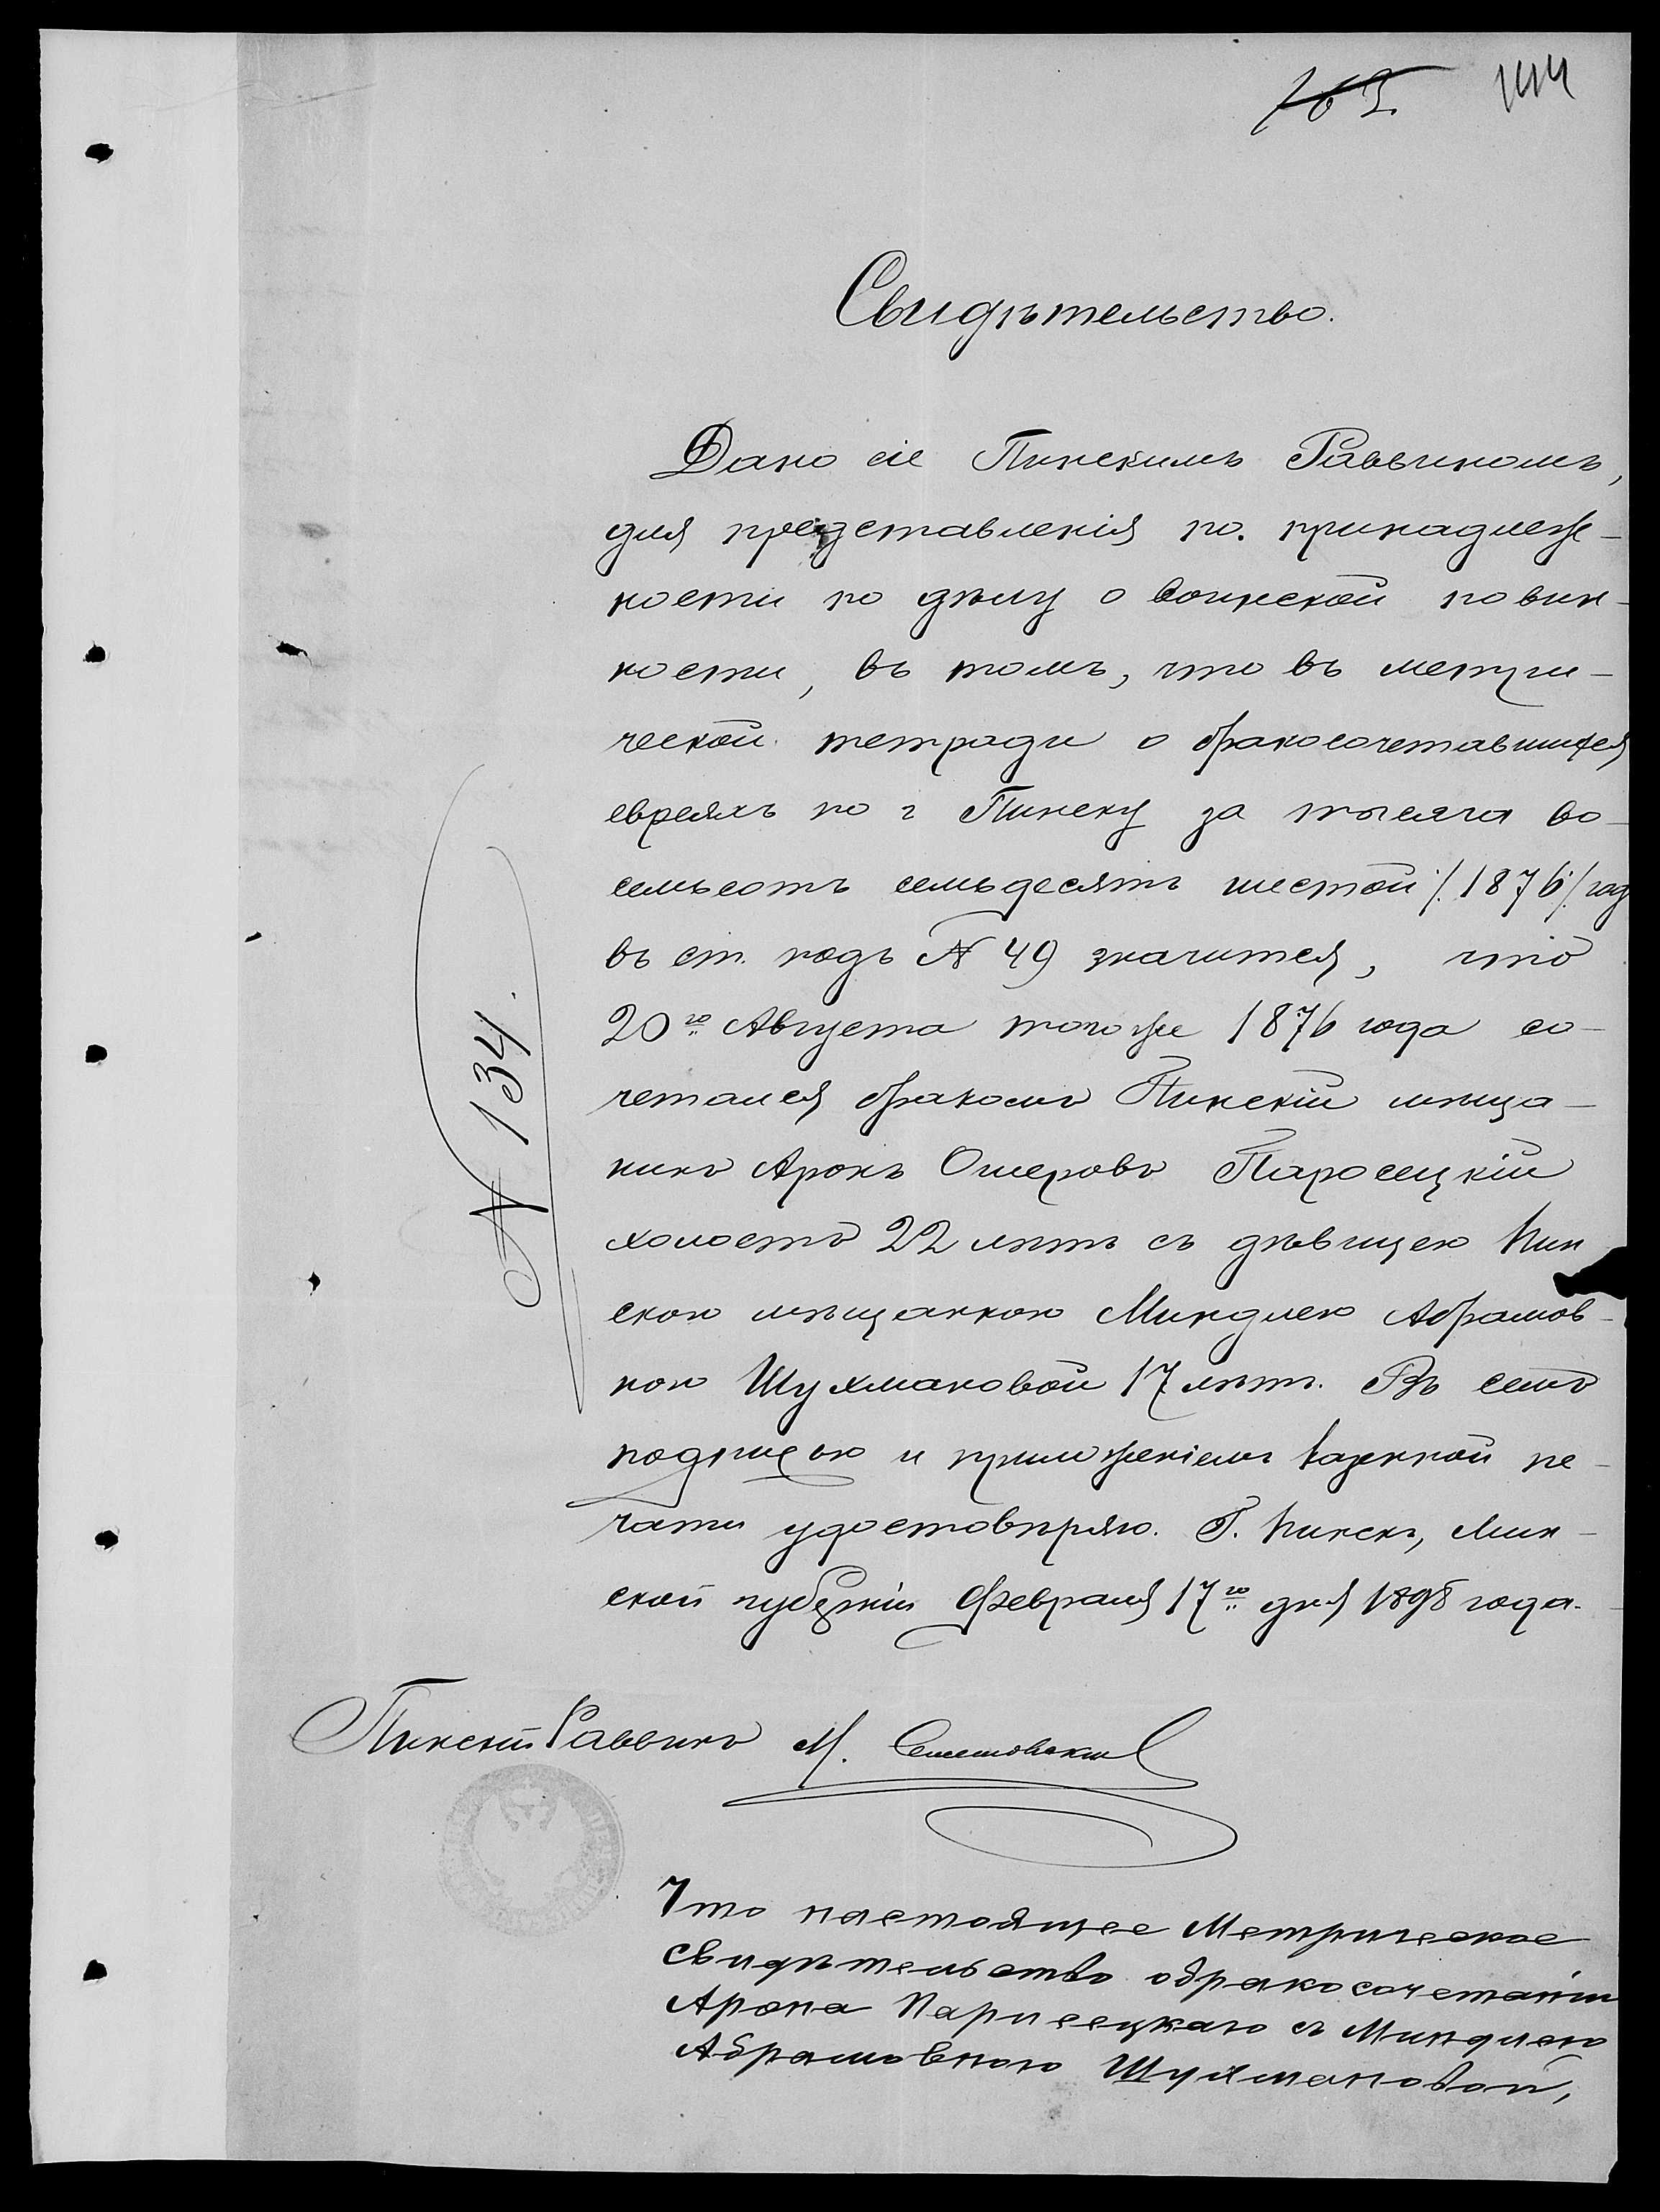 144
Свидѣтельство.
Дано сіе Пинскимъ Раввиномъ,
для представленія по. принадлеж-
ности по дѣлу о воинской повин-
ности, въ томъ, что въ метри-
ческой тетради о бракосочетавшихся
евреяхъ по г Пинску за тысяча во-
семьсотъ семьдесятъ шестой /.1876/. год
въ ст. подъ № 49 значится, что
20го Августа того же 1876 года со-
четался бракомъ Пинскій мѣща-
нинъ Аронъ Ошеровъ Паросецкій
холостъ 22 лѣтъ съ дѣвицею Пин
скою мѣщанкою Миндлею Абрамов-
ною Шухмановой 17 лѣтъ. Въ семъ
подписью и приложеніемъ казенной пе-
чати удостовѣряю. Г. Пинскъ, Мин-
ской губерніи Февраля 17го дня 1898 года.
№ 134.
Пинскій Раввинъ М.
Что настоящее Метрическое
свидѣтельство о бракосочетаніи
Арона Паросецкаго съ Миндлею
Абрамовною Шухмановой,